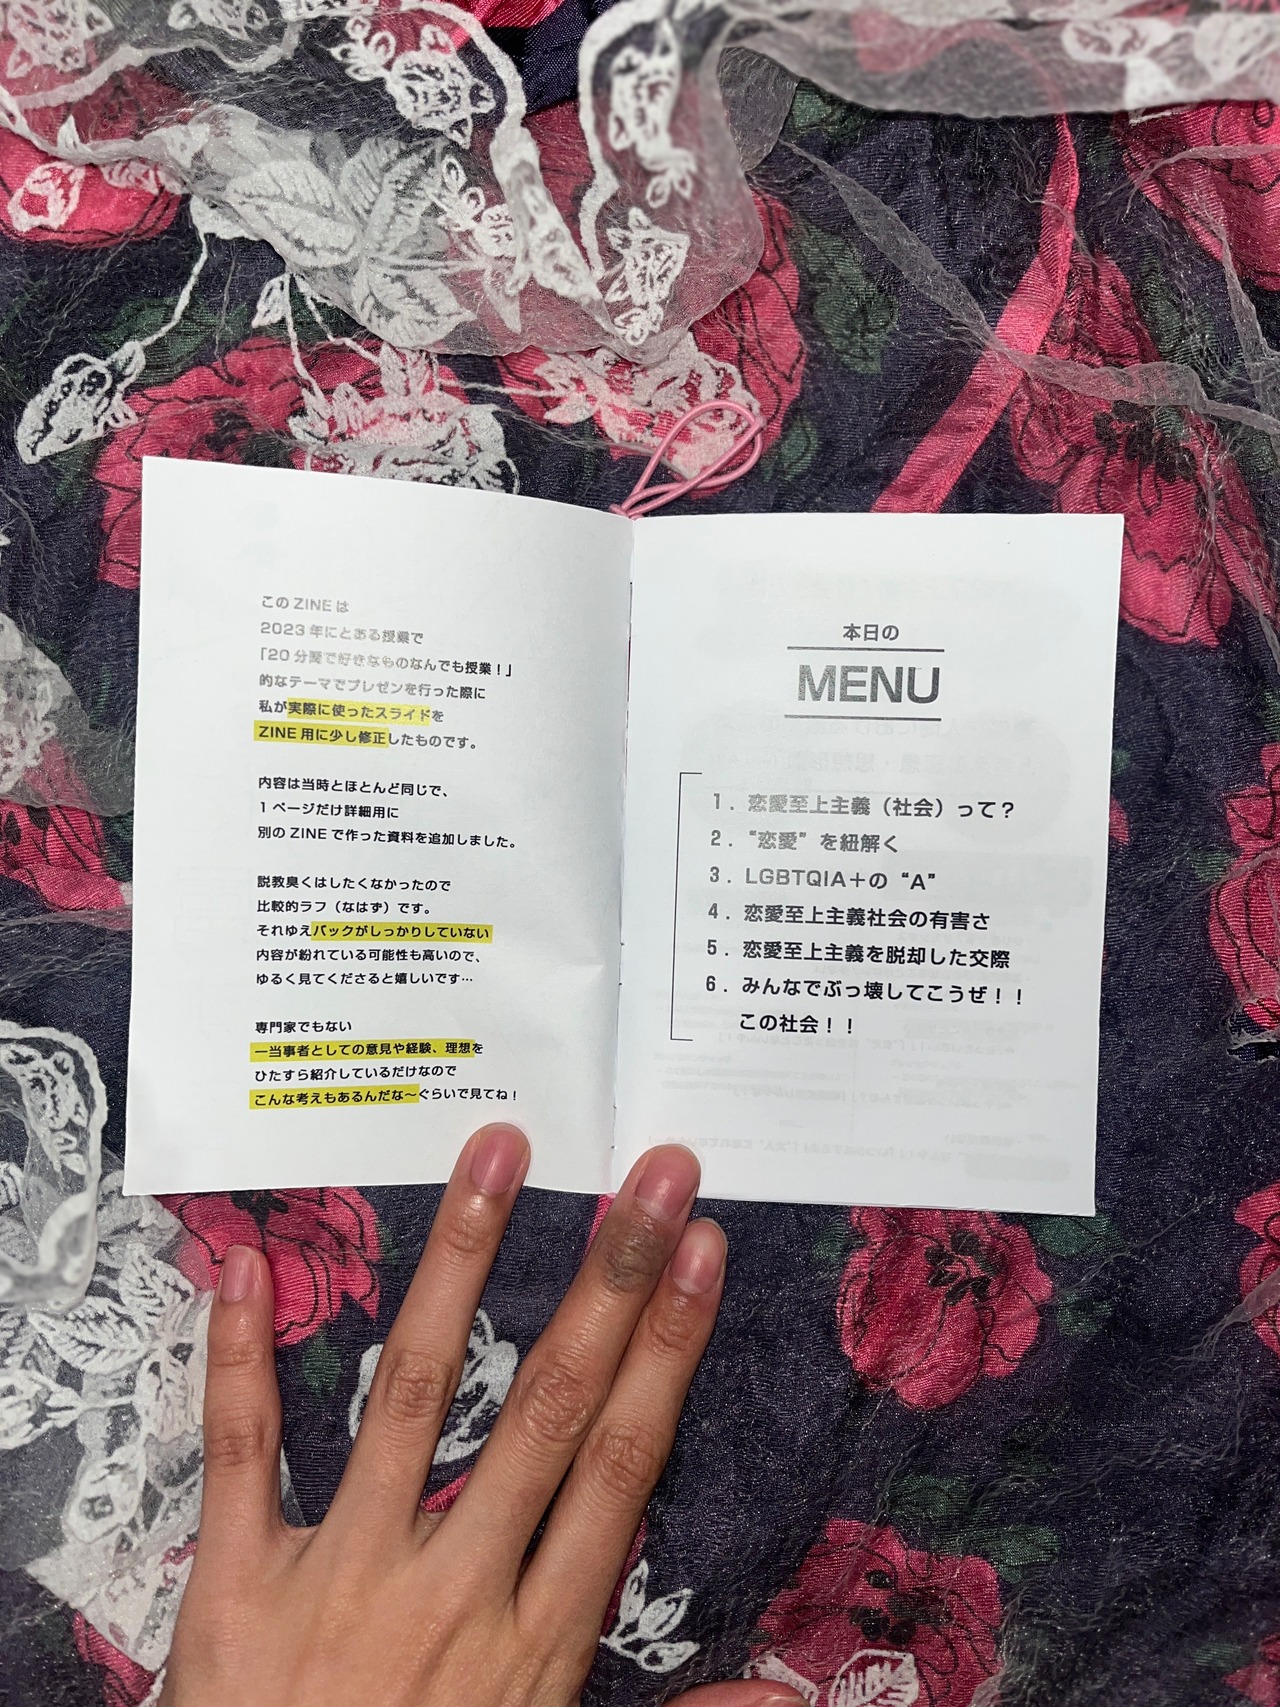 このZINEは
2023年にとある授業で
「20分間で好きなものなんでも授業!」
的なテーマでプレゼンを行った際に
私が実際に使ったスライドを
ZINE用に少し修正したものです。
内容は当時とほとんど同じで、
1ページだけ詳細用に
別のZINEで作った資料を追加しました。
説教臭くはしたくなかったので
比較的ラフ(なはず)です。
それゆえバックがしっかりしていない
内容が紛れている可能性も高いので、
ゆるく見てくださると嬉しいです…
専門家でもない
一当事者としての意見や経験、理想を
ひたすら紹介しているだけなので
こんな考えもあるんだな〜ぐらいで見てね!
本日の
MENU
1. 恋愛至上主義(社会)って?
2. “恋愛”を紐解く
3. LGBTQIA+の“A”
4. 恋愛至上主義社会の有害さ
5. 恋愛至上主義を脱却した交際
6. みんなでぶっ壊してこうぜ!!
この社会!!